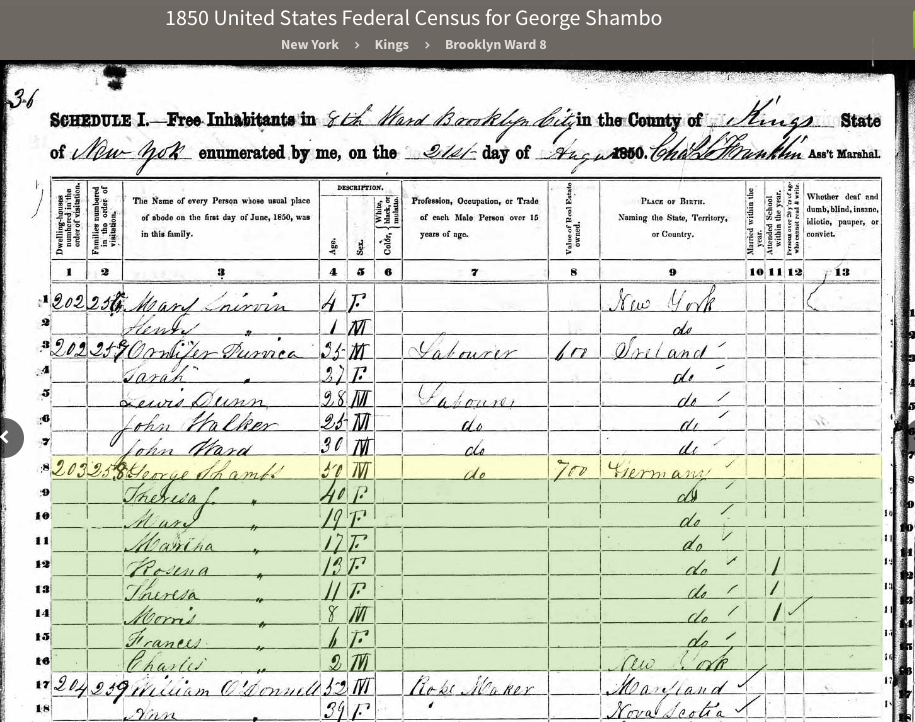 1850 United States Federal Census for George Shambo
New York > Kings > Brooklyn Ward 8
36
SCHEDULE I.—Free Inhabitants in 8th Ward Brooklyn City in the County of Kings State
of New York enumerated by me, on the 21st day of Augu 1850. Chas Franklin Ass't Marshal.
Dwelling-houses numbered in the order of visitation.
Families numbered in the order of visitation.
The Name of every Person whose usual place of abode on the first day of June, 1850, was in this family.
DESCRIPTION.
Age.
Sex.
Color, White, black, or mulatto.
Profession, Occupation, or Trade of each Male Person over 15 years of age.
Value of Real Estate owned.
PLACE OF BIRTH. Naming the State, Territory, or Country.
Married within the year.
Attended School within the year.
Persons over 20 y'rs of age who cannot read & write.
Whether deaf and dumb, blind, insane, idiotic, pauper, or convict.
1 2 3 4 5 6 7 8 9 10 11 12 13
1 202 256 Mary 4 F New York
2 Henry " 1 M do
3 202 257 35 M Labourer 600 Ireland
4 Sarah " 27 F do
5 Lewis Dunn 28 M Labourer do
6 John Walker 25 M do do
7 John Ward 30 M do do
8 203 258 George Shambo 50 M do 700 Germany
9 Theresa J. " 40 F do
10 Mary " 19 F do
11 Martha " 17 F do
12 Rosena " 13 F do 1
13 Theresa " 11 F do 1
14 Morris " 8 M do 1 ✓
15 Frances " 6 F do
16 Charles " 2 M New York
17 204 259 William O'Donnell 52 M Rope Maker Maryland ✓
18 Ann 39 F Nova Scotia ✓